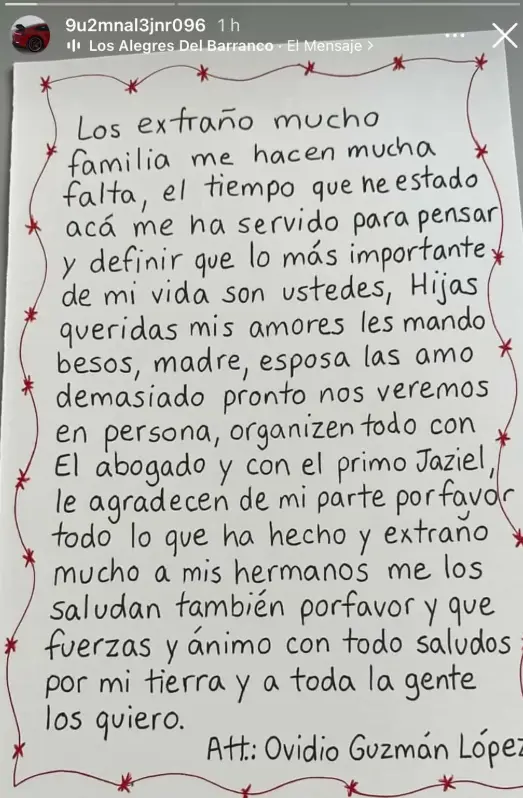 9u2mnal3jnr096 1 h
Los Alegres Del Barranco · El Mensaje >
Los extraño mucho
familia me hacen mucha
falta, el tiempo que he estado
acá me ha servido para pensar
y definir que lo más importante
de mi vida son ustedes, Hijas
queridas mis amores les mando
besos, madre, esposa las amo
demasiado pronto nos veremos
en persona, organizen todo con
El abogado y con el primo Jaziel,
le agradecen de mi parte porfavor
todo lo que ha hecho y extraño
mucho a mis hermanos me los
saludan también porfavor y que
fuerzas y ánimo con todo saludos
por mi tierra y a toda la gente
los quiero.
Att.: Ovidio Guzmán López